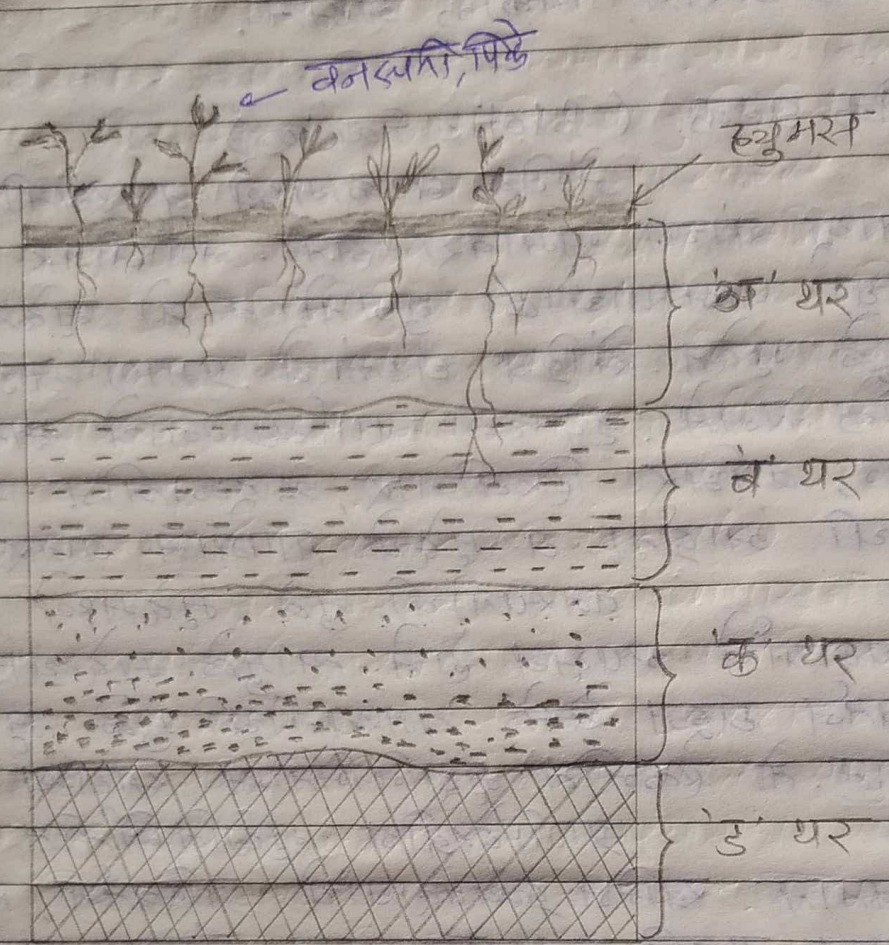 वनस्पती, पिके
ह्युमस
'अ' थर
'ब' थर
'क' थर
'ड' थर